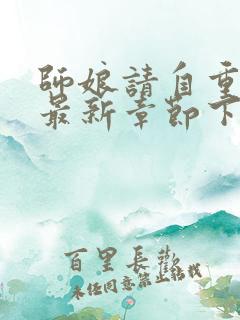 師娘請自重
最新章節下
百里長歡
未任同意禁止转载